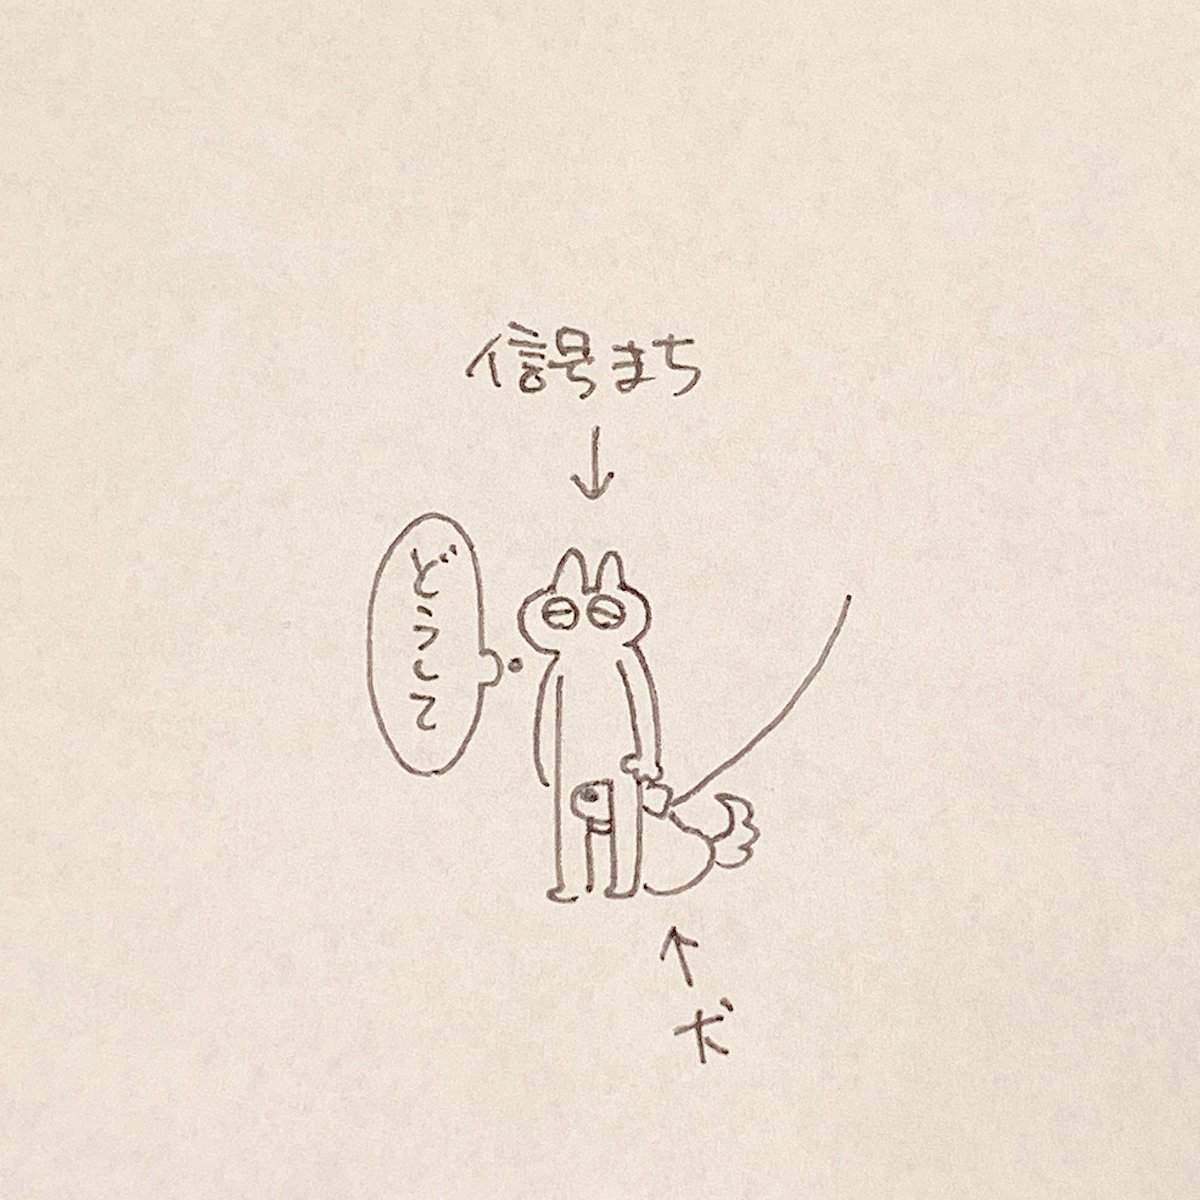 信号まち
どうして
犬